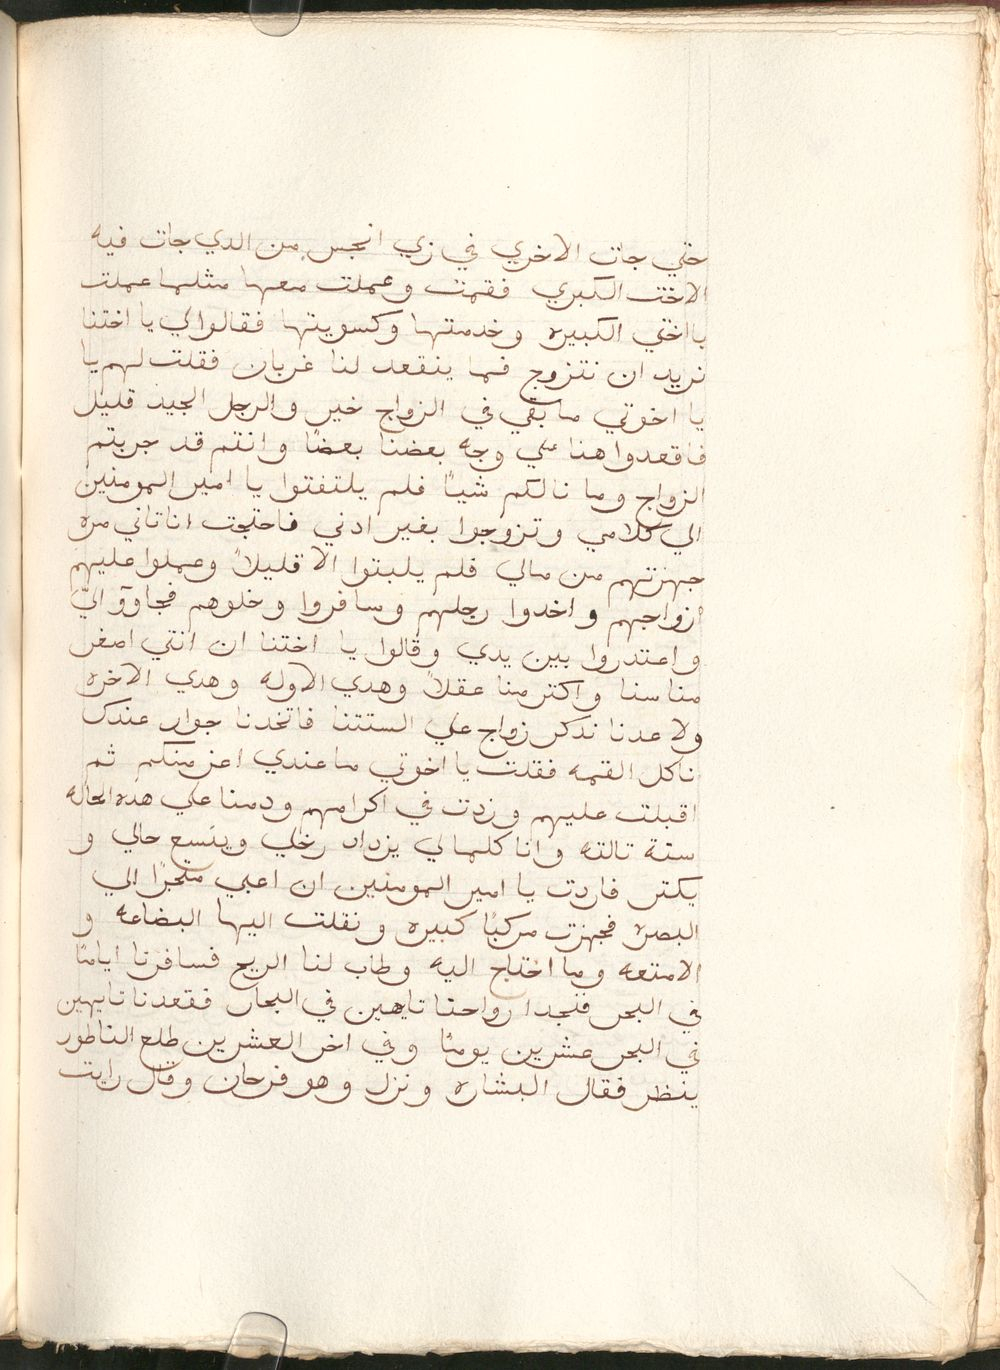 حتي جات الاخري في زي انجس من الدي جات فيه
الاخت الكبري فقمت وعملت معها مثلما عملت
بااختي الكبيره وخدمتها وكسويتها فقالوا لي يا اختنا
نريد ان نتزوج فما ينقعد لنا غربان فقلت لهم يا
يا اخوتي ما بقي في الزواج خير والرجل الجيد قليل
فاقعدوا هنا علي وجه بعضنا بعضًا وانتم قد جربتم
الزواج وما نالكم شياً فلم يلتفتوا يا امير المومنين
الي كلامي وتزوجوا بغير ادني فاحتجت انا تاني مره
جهزتهم من مالي فلم يلبتوا الا قليلاً وعملوا عليهم
ازواجهم واخدوا رجلهم وسافروا وخلوهم فجاووا اليّ
واعتدروا بين يدي وقالوا يا اختنا ان انتي اصغر
منا سنا واكتر منا عقلاً وهدي الاوله وهدي الاخره
ولا عدنا ندكر زواج علي السنتنا فاتخدنا جوار عندك
ناكل القمه فقلت يا اخوتي ما عندي اعز منكم ثم
اقبلت عليهم وزدت في اكرامهم ودمنا علي هده الحاله
سنة تالته وانا كلمالي يزداد رخلي ويتسع حالي و
يكتر فاردت يا امير المومنين ان اعبي متجرًا الي
البصره فجهزت مركبًا كبيره ونقلت اليها البضاعه و
الامتعه وما احتاج اليه وطاب لنا الريح فسافرنا ايامًا
في البحر فنجدا رواحنا تايهين في البحار فقعدنا تايهين
في البحر عشرين يومًا وفي اخر العشرين طلع الناطور
ينظر فقال البشاره ونزل وهو فرحان وقال رايت